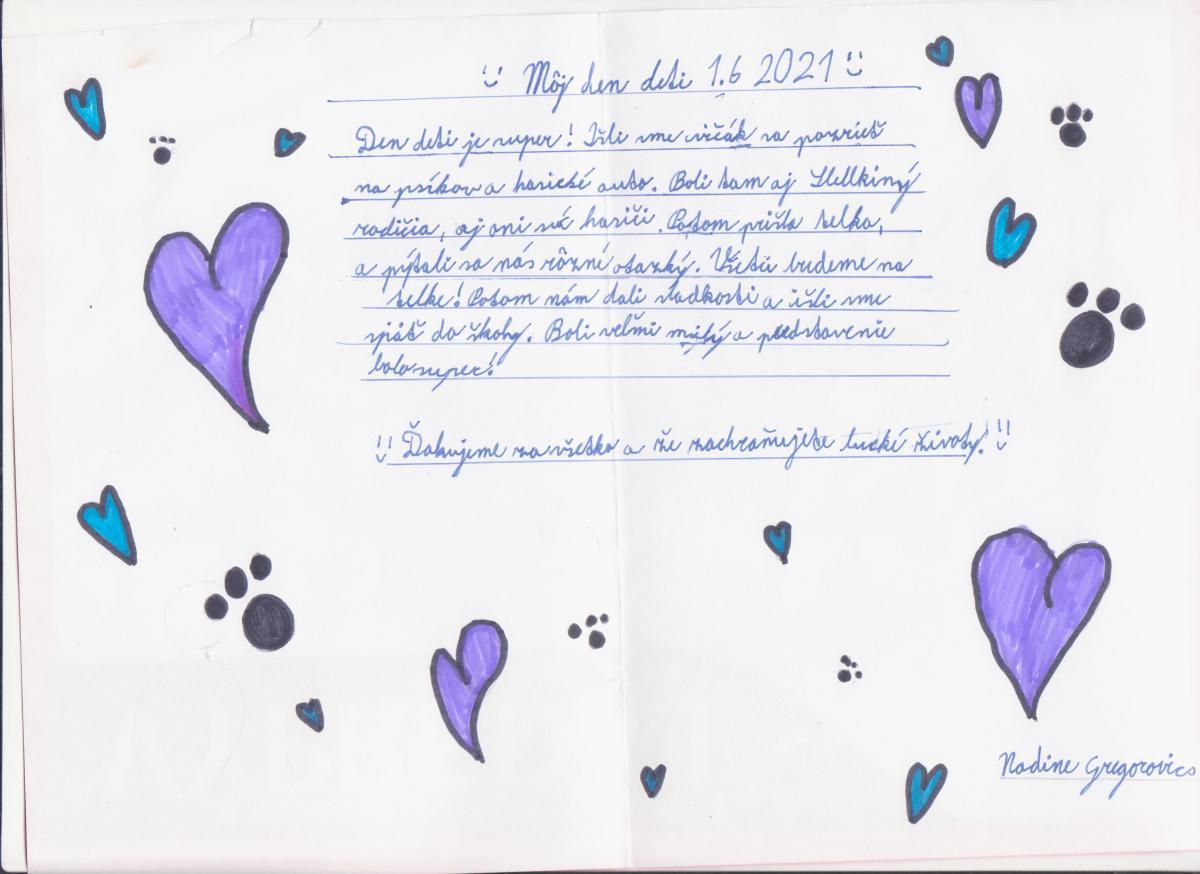 Môj den deti 1.6 2021
Den deti je super! Išli sme cičák sa pozrieť
na psíkov a hasické auto. Boli tam aj Stellkiný
rodičia, aj oni sú hasiči. Potom prišla telka,
a pýtali sa nás rôzné otazký. Všetii budeme na
telke! Potom nám dali sladkosti a išli sme
späť do školy. Boli veľmi milý a predstavenie
bolo super!
Ďakujeme za všetko a že zachraňujete lucké životy!
Nadine Gregorovics